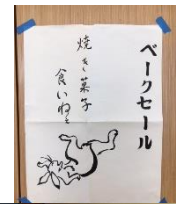 ベークセール
焼き菓子
食いねぇ